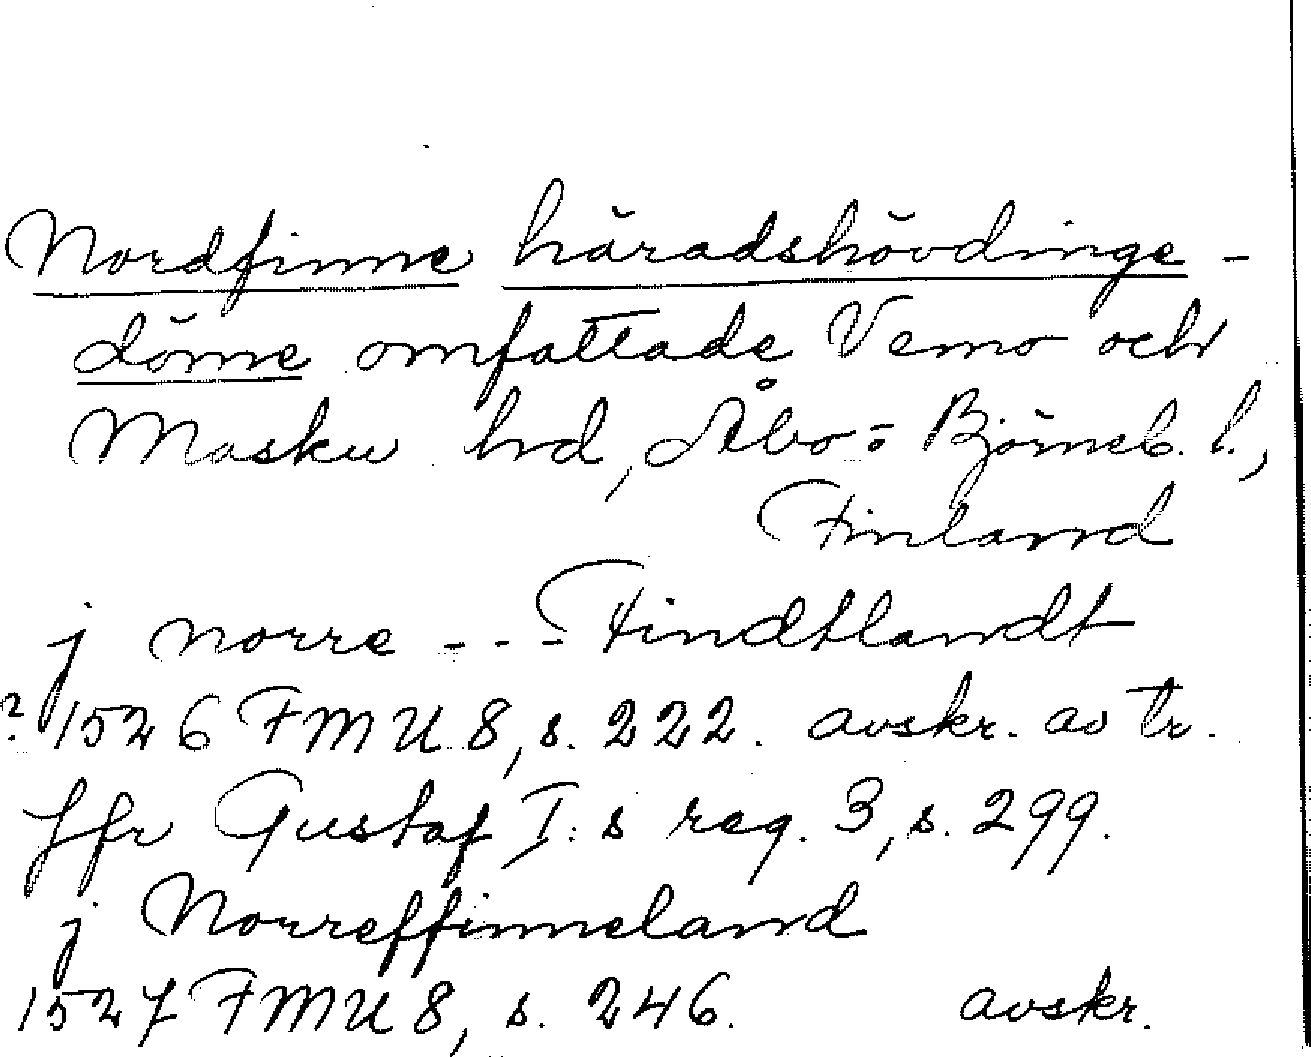 Nordfinne häradshövdinge-
döme omfattade Vemo och
Masku hd, Åbo-Björneb. l.,
Finland
j norre --- Findtlandt
? 1526 FMU 8, s. 222. avskr. av tr.
Jfr Gustaf I:s reg. 3, s. 299.
j Norreffinneland
1527 FMU 8, s. 246. avskr.